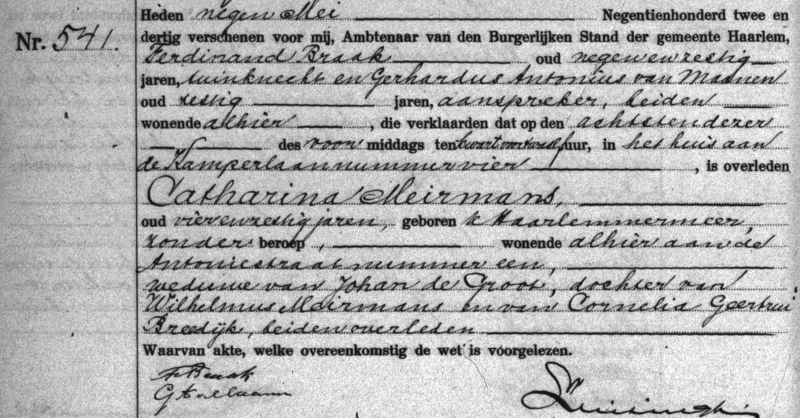 Heden negen Mei Negentienhonderd twee en
Nr. 541. dertig verschenen voor mij, Ambtenaar van den Burgerlijken Stand der gemeente Haarlem,
Ferdinand Braak oud negenenzestig
jaren, tuinknecht en Gerhardus Antonius van Maanen
oud zestig jaren, aanspreker, beiden
wonende alhier, die verklaarden dat op den achtsten dezer
des voor middags ten kwart voor twaalf uur, in het huis aan
de Kamperlaan nummer vier, is overleden
Catharina Meirmans,
oud vierenzestig jaren, geboren te Haarlemmermeer,
zonder beroep, wonende alhier aan de
Antoniestraat nummer een,
weduwe van Johan de Groot, dochter van
Wilhelmus Meirmans en van Cornelia Geertrui
Breedijk, beiden overleden
Waarvan akte, welke overeenkomstig de wet is voorgelezen.
F Braak